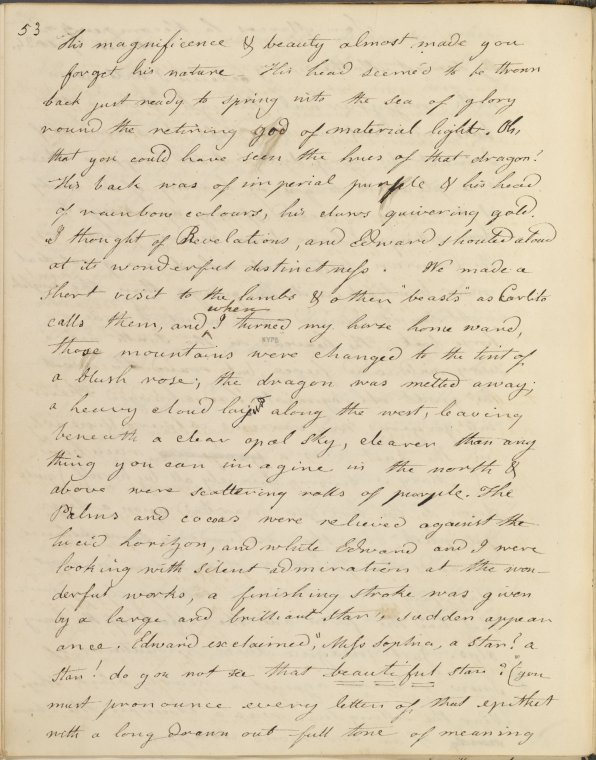 53
His magnificence & beauty almost made you
forget his nature His head seemed to be thrown
back just ready to spring into the sea of glory
round the retiring god of material light. Oh,
that you could have seen the hues of that dragon!
His back was of imperial purple & his head
of rainbow colours, his claws quivering gold.
I thought of Revelations, and Edward shouted aloud
at its wonderful distinctness. We made a
short visit to the lambs & other "beasts" as Carlito
calls them, and when I turned my horse home ward,
those mountains were changed to the tint of
a blush rose; the dragon was melted away;
a heavy cloud lay just along the west, leaving
beneath a clear opal sky, clearer than any
thing you can imagine in the north &
above were scattering rolls of purple. The
Palms and cocoas were relieved against the
lucid horizon, and while Edward and I were
looking with silent admiration at the won-
derful works, a finishing stroke was given
by a large and brilliant star's sudden appear
ance. Edward exclaimed, "Miss Sophia, a star! a
star! do you not see that beautiful star?" (you
must pronounce every letter of that epithet
with a long drawn out full tone of meaning
NYPL